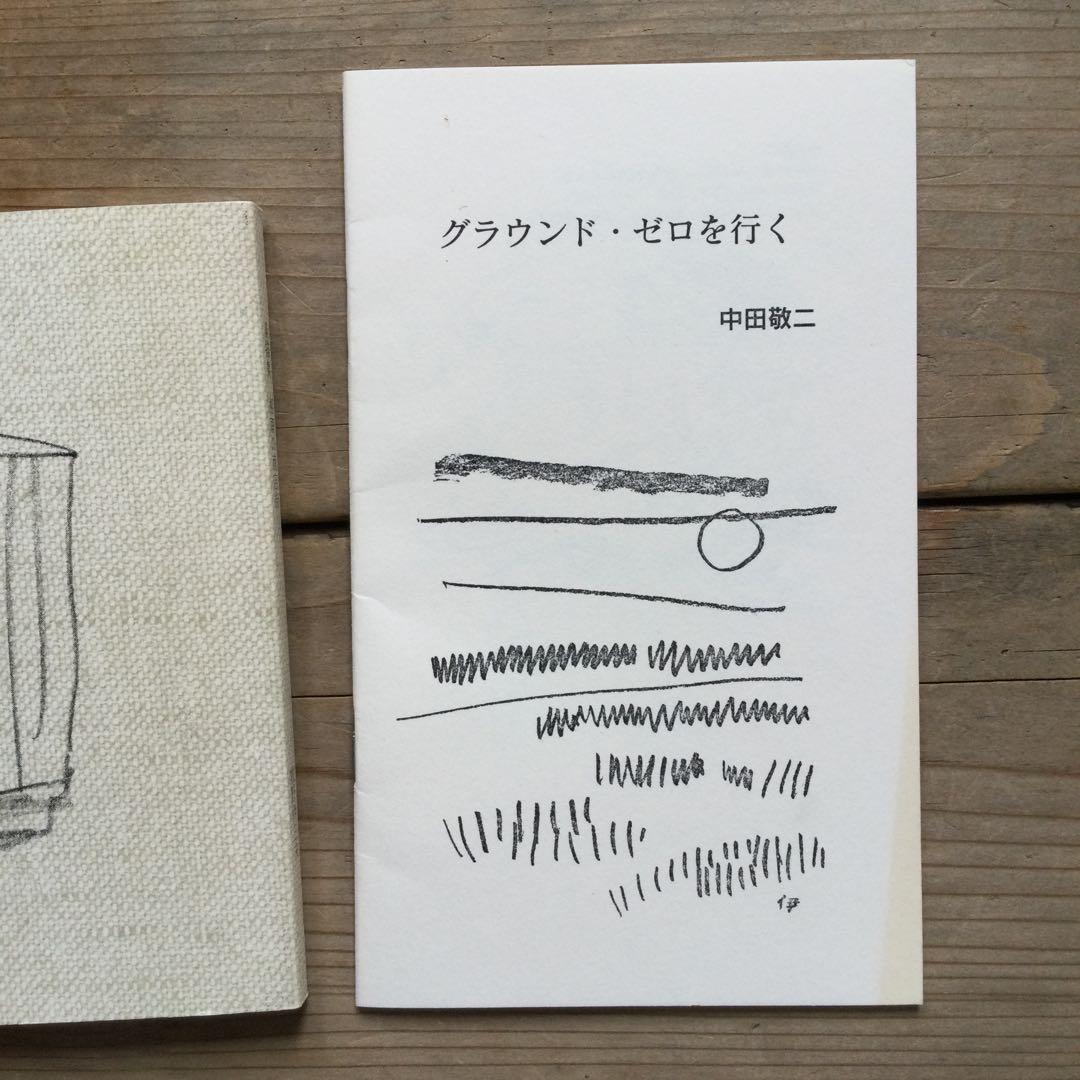 グラウンド・ゼロを行く
中田敬二
伊